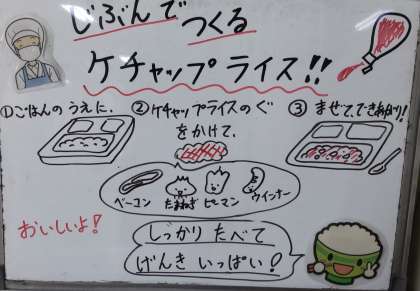 じぶんで つくる
ケチャップライス!!
①ごはんのうえに、
②ケチャップライスのぐ
をかけて、
③まぜて、できあがり!!
ベーコン たまねぎ ピーマン ウインナー
おいしいよ!
しっかり たべて
げんき いっぱい!